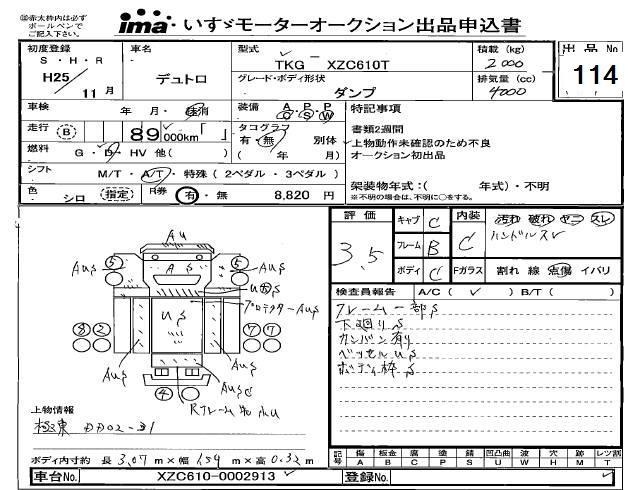 ※赤太枠内は必ず
ボールペンで
ご記入下さい。
ima いすゞモーターオークション出品申込書
初度登録
S ・ H ・ R
H25/
11 月
車名
デュトロ
型式
TKG - XZC610T
グレード・ボディ形状
ダンプ
積載 (kg)
2000
排気量 (cc)
4000
出品No
114
車検
年 月・
装備
A・P・P
C S W
特記事項
書類2週間
上物動作未確認のため不良
オークション初出品
走行
B
89,000km「 」
タコグラフ
有・無 別体
( 年 月)
燃料
G・D・HV 他( )
シフト
M/T・A/T・特殊(2ペダル・3ペダル)
架装物年式:( 年式)・不明
※不明の場合は、不明に○をする。
色
シロ (指定)
R券
有・無 8,820 円
評価
3.5
キャブ C
フレーム B
ボディ C
内装
C
汚れ 破れ ヤニ スレ
ハンドルスレ
Fガラス 割れ 線 点傷 イバリ
検査員報告 A/C( ✓ ) B/T( )
フレーム一部S
下廻りS
カンバン有り
ベッセルUS
ボディ枠S
AU
5
5
AUS
A S
AUS
プロテクターAUS
US
8 2
7 7
AUS
AUS
AUSC
4
上物情報
極東 DD02-31
ボディ内寸約 長 3.07m×幅 1.59m×高 0.32m
記号
傷 板金 腐 塗 錆 凹凸曲 波 穴 跡 レンズ割
A B C P S U W H M T
車台No.
XZC610-0002913
登録No.